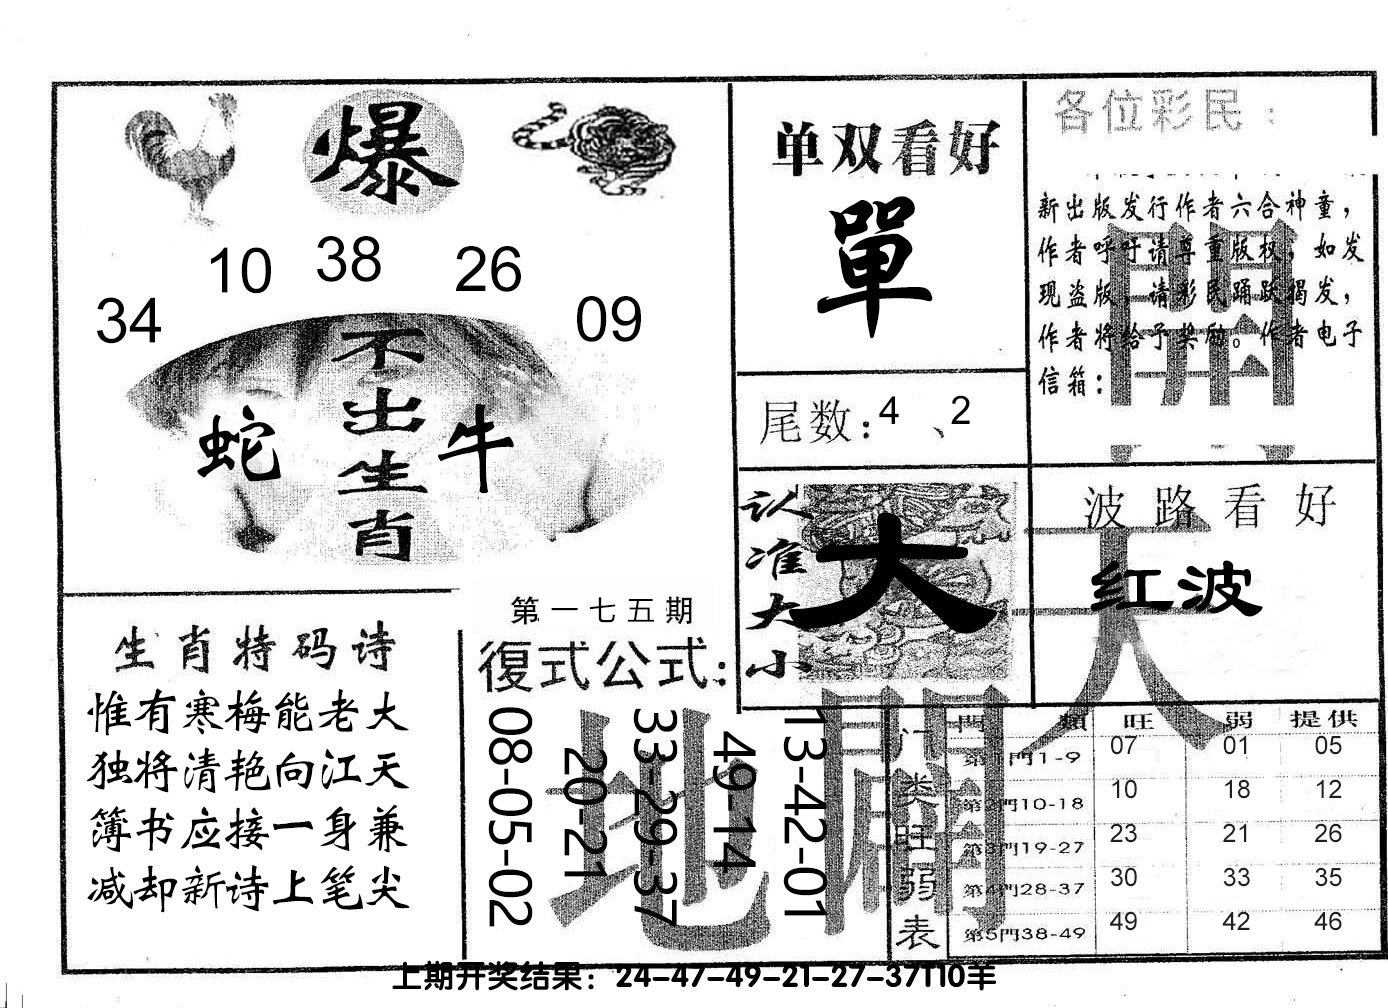 爆
10 38 26
34 09
不出生肖
蛇 牛
单双看好
單
尾数:4、2
各位彩民:
新出版发行作者六合神童，
作者呼吁请尊重版权，如发
现盗版，请彩民踊跃揭发，
作者将给予奖励。作者电子
信箱:
開
认准大小
大
波路看好
红波
天
生肖特码诗
惟有寒梅能老大
独将清艳向江天
簿书应接一身兼
减却新诗上笔尖
第一七五期
復式公式:
08-05-02
20-21
33-29-37
49-14
13-42-01
地
门类旺弱表
門類 旺 弱 提供
第1門1-9 07 01 05
第2門10-18 10 18 12
第3門19-27 23 21 26
第4門28-37 30 33 35
第5門38-49 49 42 46
上期开奖结果：24-47-49-21-27-37T10羊